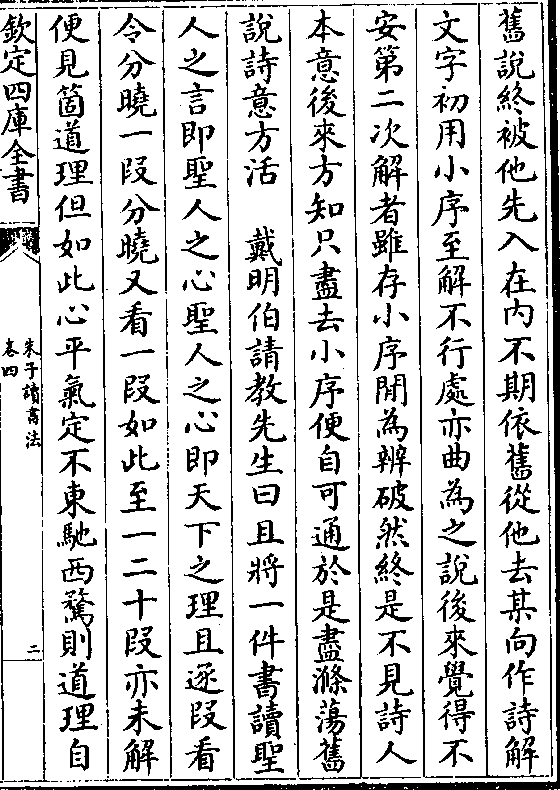 舊說終被他先入在内不期依舊從他去某向作詩解
文字初用小序至解不行處亦曲為之說後來覺得不
安第二次解者雖存小序閒為辨破然終是不見詩人
本意後來方知只盡去小序便自可通於是盡滌蕩舊
說詩意方活　戴明伯請教先生曰且將一件書讀聖
人之言即聖人之心聖人之心即天下之理且逐段看
令分曉一段分曉又看一段如此至一二十段亦未解
便見箇道理但如此心平氣定不東馳西騖則道理自
欽定四庫全書
朱子讀書法
卷四
二